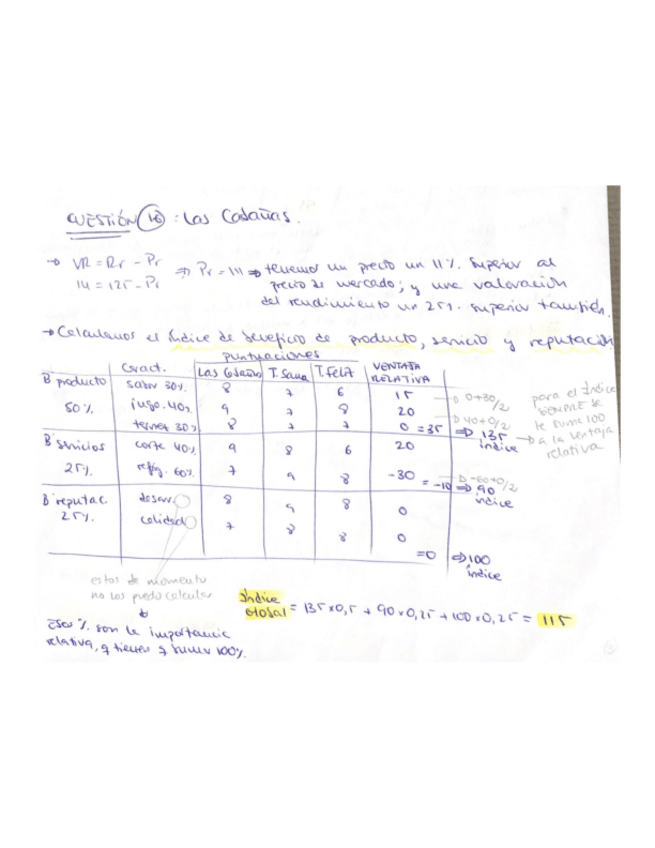 CUESTIÓN 16: Las Casañas.
→ VR = Rr - Pr
14 = 125 - Pr
⇒ Pr = 111 ⇒ tenemos un precio un 11% superior al
precio de mercado; y una valoración
del rendimiento un 25% superior también.
→ Calculamos el índice de beneficio de producto, servicio y reputación
puntuaciones
Caract. Las Casañas T. Sana T. Feli VENTAJA RELATIVA
B producto 50%
sabor 30% 8 7 6 15 → 0+30/2
jugo. 40% 9 7 8 20 → 40+0/2
terner 30% 8 7 7 0 = 35 ⇒ 135 índice
para el índice
SIEMPRE se
le suma 100
→ a la ventaja
relativa
B servicios 25%
corte 40% 9 8 6 20
refrig. 60% 7 9 8 -30 = -10 ⇒ 90 índice
→ -60+0/2
B reputac. 25%
desarr. 8 9 8 0
calidad 7 8 8 0
=0 ⇒ 100 índice
estos de momento
no los puedo calcular
Esos % son la importancia
relativa, q tienen q sumar 100%.
Índice total = 135 x 0,5 + 90 x 0,25 + 100 x 0,25 = 115